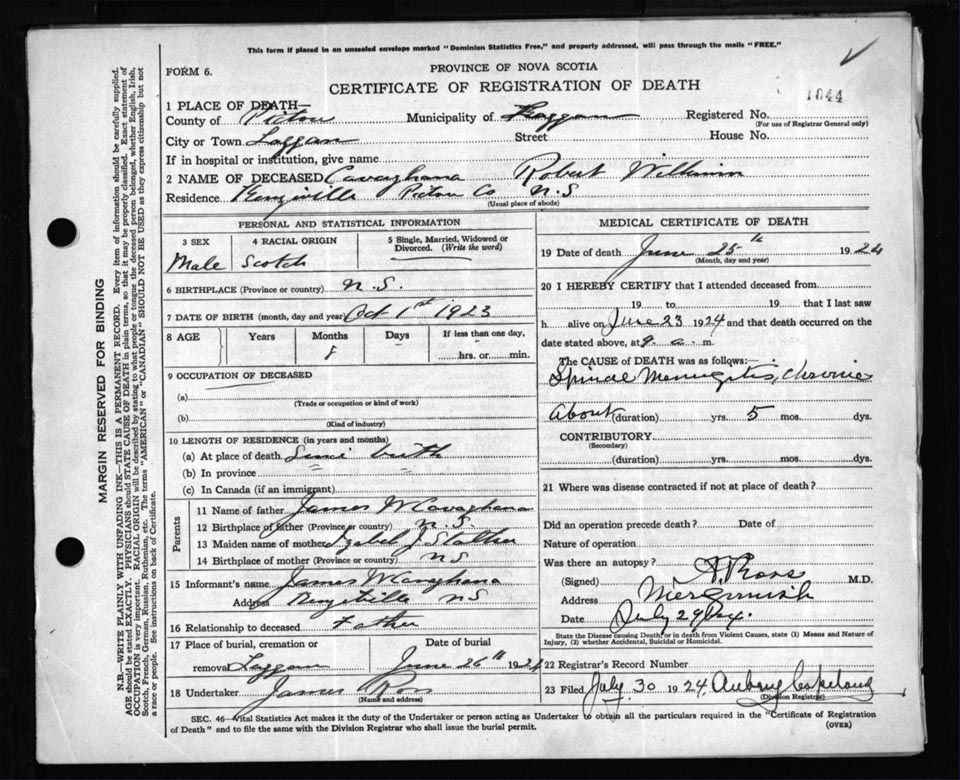 This form if placed in an unsealed envelope marked "Dominion Statistics Free," and properly addressed, will pass through the mails "FREE."
FORM 6.
PROVINCE OF NOVA SCOTIA
CERTIFICATE OF REGISTRATION OF DEATH
1644
1 PLACE OF DEATH—
County of Pictou Municipality of Registered No.
(For use of Registrar General only)
City or Town Laggan Street House No.
If in hospital or institution, give name
2 NAME OF DECEASED Cavaghana Robert William
Residence Pictou Co N.S
(Usual place of abode)
PERSONAL AND STATISTICAL INFORMATION
3 SEX 4 RACIAL ORIGIN 5 Single, Married, Widowed or Divorced. (Write the word)
Male Scotch
6 BIRTHPLACE (Province or country) N.S.
7 DATE OF BIRTH (month, day and year) Oct 1st 1923
8 AGE Years Months Days If less than one day,
8 hrs. or min.
9 OCCUPATION OF DECEASED
(a)
(Trade or occupation or kind of work)
(b)
(Kind of industry)
10 LENGTH OF RESIDENCE (in years and months)
(a) At place of death birth
(b) In province " "
(c) In Canada (if an immigrant)
Parents
11 Name of father James W Cavaghana
12 Birthplace of father (Province or country) N.S.
13 Maiden name of mother
14 Birthplace of mother (Province or country) NS
15 Informant's name James W Cavaghana
Address NS
16 Relationship to deceased Father
17 Place of burial, cremation or removal Laggan Date of burial June 26th 1924
18 Undertaker James Ross
(Name and address)
MEDICAL CERTIFICATE OF DEATH
19 Date of death June 25th 1924
(Month, day and year)
20 I HEREBY CERTIFY that I attended deceased from
19 to 19 that I last saw
h alive on June 23 1924 and that death occurred on
date stated above, at 9. a. m.
The CAUSE OF DEATH was as follows:
Spinal Meningitis, Chronic
About (duration) yrs. 5 mos. dys.
CONTRIBUTORY
(Secondary)
(duration) yrs. mos. dys.
21 Where was disease contracted if not at place of death?
Did an operation precede death? Date of
Nature of operation
Was there an autopsy?
(Signed) A Ross M.D.
Address
Date July 29
State the Disease causing Death, or in death from Violent Causes, state (1) Means and Nature of Injury, (2) whether Accidental, Suicidal or Homicidal.
22 Registrar's Record Number
23 Filed July 30 1924 Copeland
(Division Registrar)
SEC. 46—Vital Statistics Act makes it the duty of the Undertaker or person acting as Undertaker to obtain all the particulars required in the "Certificate of Registration
of Death" and to file the same with the Division Registrar who shall issue the burial permit. (OVER)
MARGIN RESERVED FOR BINDING
N.B.—WRITE PLAINLY WITH UNFADING INK—THIS IS A PERMANENT RECORD. Every item of information should be carefully supplied.
AGE should be stated EXACTLY. PHYSICIANS should STATE CAUSE OF DEATH in plain terms, so that it may be properly classified. Exact statement of
OCCUPATION is very important. RACIAL ORIGIN will be described by stating to what people or tongue the deceased person belonged, whether English, Irish,
Scotch, French, German, Russian, Ruthenian, etc. The terms "AMERICAN" or "CANADIAN" SHOULD NOT BE USED as they express citizenship but not
a race or people. See instructions on back of Certificate.